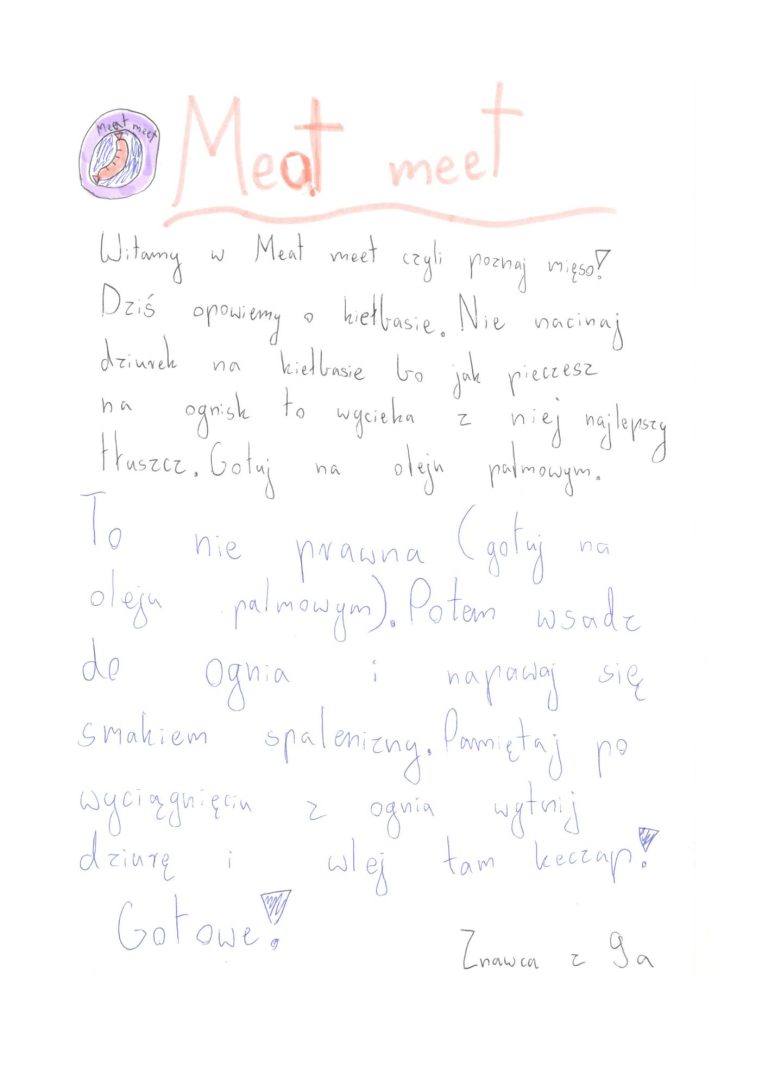 Meat meet
Meat meet
Witamy w Meat meet czyli poznaj mięso!
Dziś opowiemy o kiełbasie. Nie nacinaj
dziurek na kiełbasie bo jak pieczesz
na ognisk to wycieka z niej najlepszy
tłuszcz. Gotuj na oleju palmowym.
To nie prawna (gotuj na
oleju palmowym). Potem wsadz
do ognia i napawaj się
smakiem spalenizny. Pamiętaj po
wyciągnięciu z ognia wytnij
dziurę i wlej tam keczap!
Gotowe!
Znawca z 9a